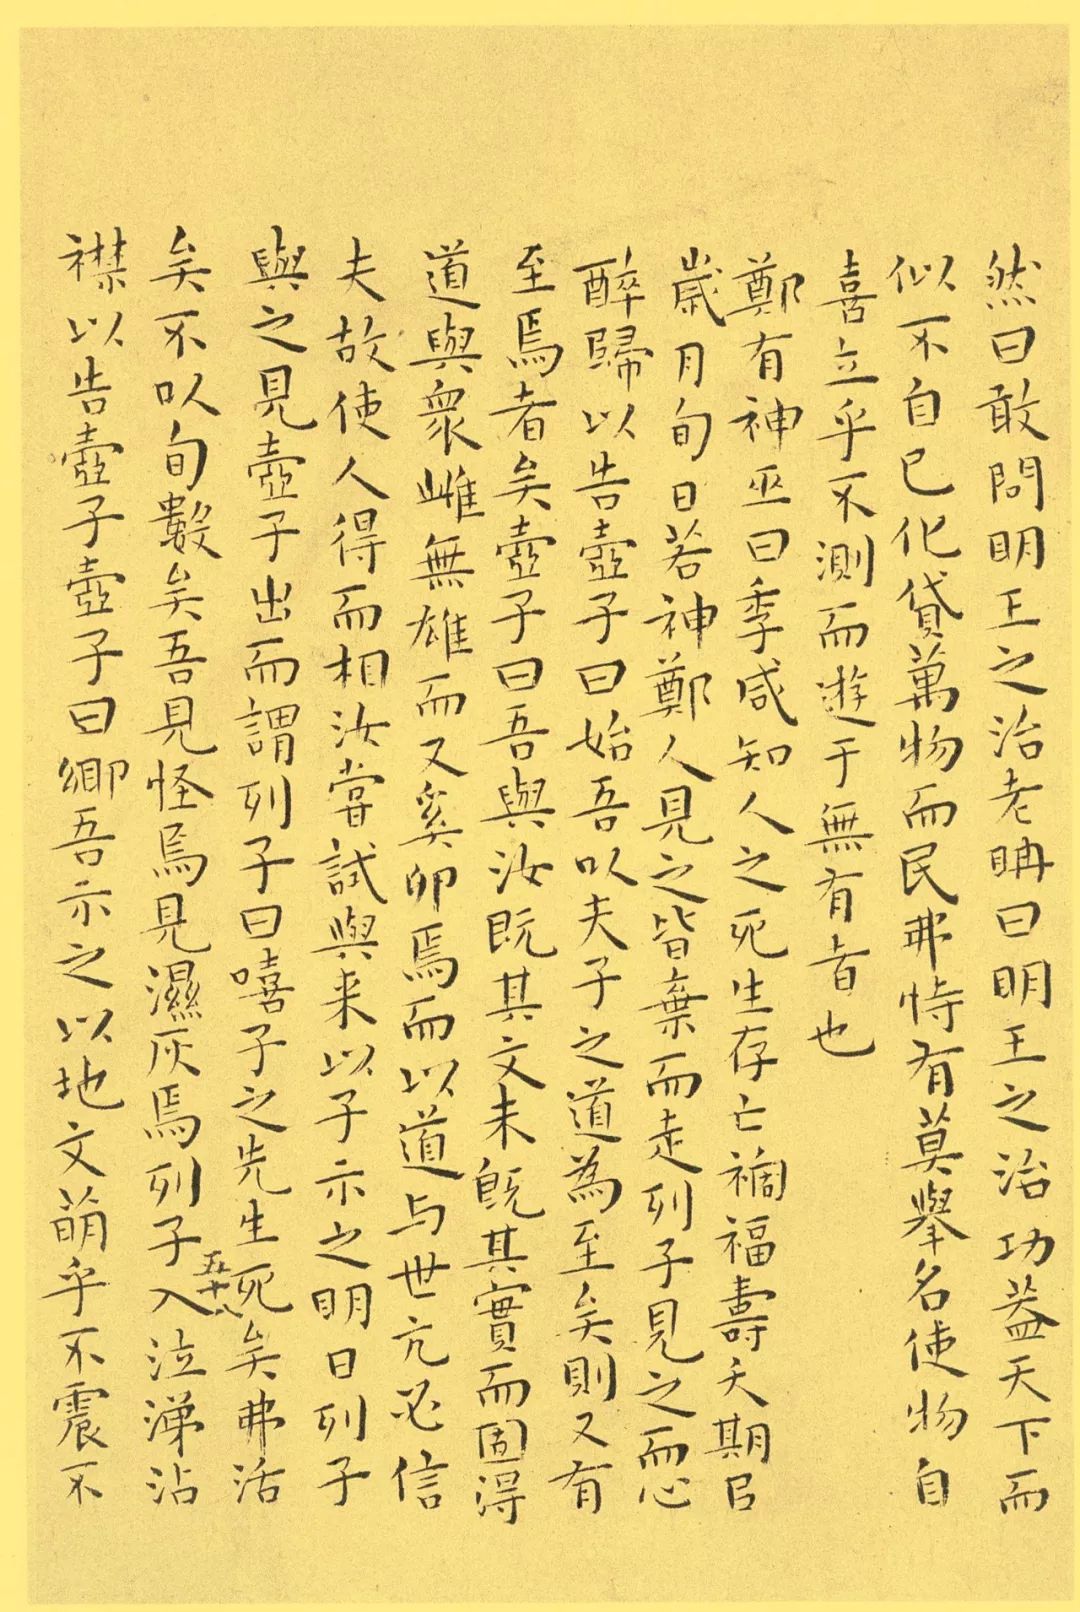 然曰敢問明王之治老聃曰明王之治功蓋天下而
似不自己化貸萬物而民弗恃有莫舉名使物自
喜立乎不測而遊于無有者也
鄭有神巫曰季咸知人之死生存亡禍福壽夭期以
歲月旬日若神鄭人見之皆棄而走列子見之而心
醉歸以告壺子曰始吾以夫子之道為至矣則又有
至焉者矣壺子曰吾與汝既其文未既其實而固得
道與衆雌無雄而又奚卵焉而以道与世亢必信
夫故使人得而相汝嘗試與来以子示之明日列子
與之見壺子出而謂列子曰嘻子之先生死矣弗活
矣不以旬數矣吾見怪焉見濕灰焉列子入泣涕沾
五十八
襟以告壺子壺子曰鄉吾示之以地文萌乎不震不